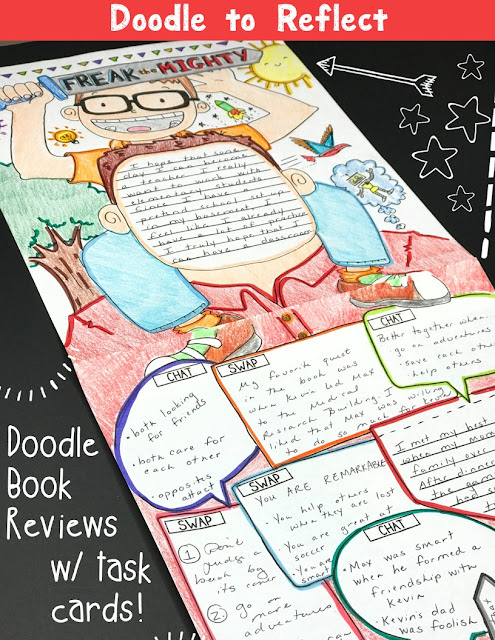 Doodle to Reflect
FREAK the MIGHTY
I hope that some
day I can become
a teacher. I really
want to work with
elementary students
I have a
pretend school set up
in my basement. I
feel like I already
have a lot of practice
I truly hope that I
can have a classroom
CHAT
• both looking
for friends
• both care for
each other
• opposites
attract
SWAP
My favorite quest
in the book was
when Kevin led Max
to the Medical
Research Building. I
liked that Max was willing
to do so much for Kevin
CHAT
Better together when
go on adventures
save each other
help others
SWAP
YOU ARE REMARKABLE
• You help others
when they are lost
• You are great at
soccer
• You are
smart
I met my best
when my mom
family over
After dinner
the gam
had s
SWAP
① Don't
judge a
book by
its cover
② Go on
more
adventures
CHAT
• Max was smart
when he formed a
friendship with
Kevin
• Kevin's dad
was foolish
Doodle
Book
Reviews
w/ task
cards!